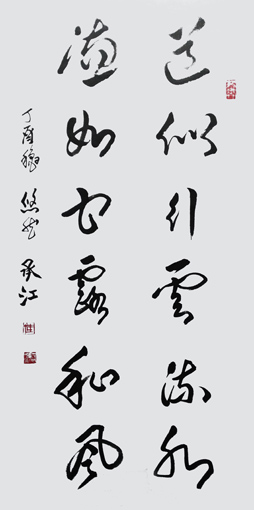 道似行雲流水
德如甘露和風
丁酉秋 悠然 承江